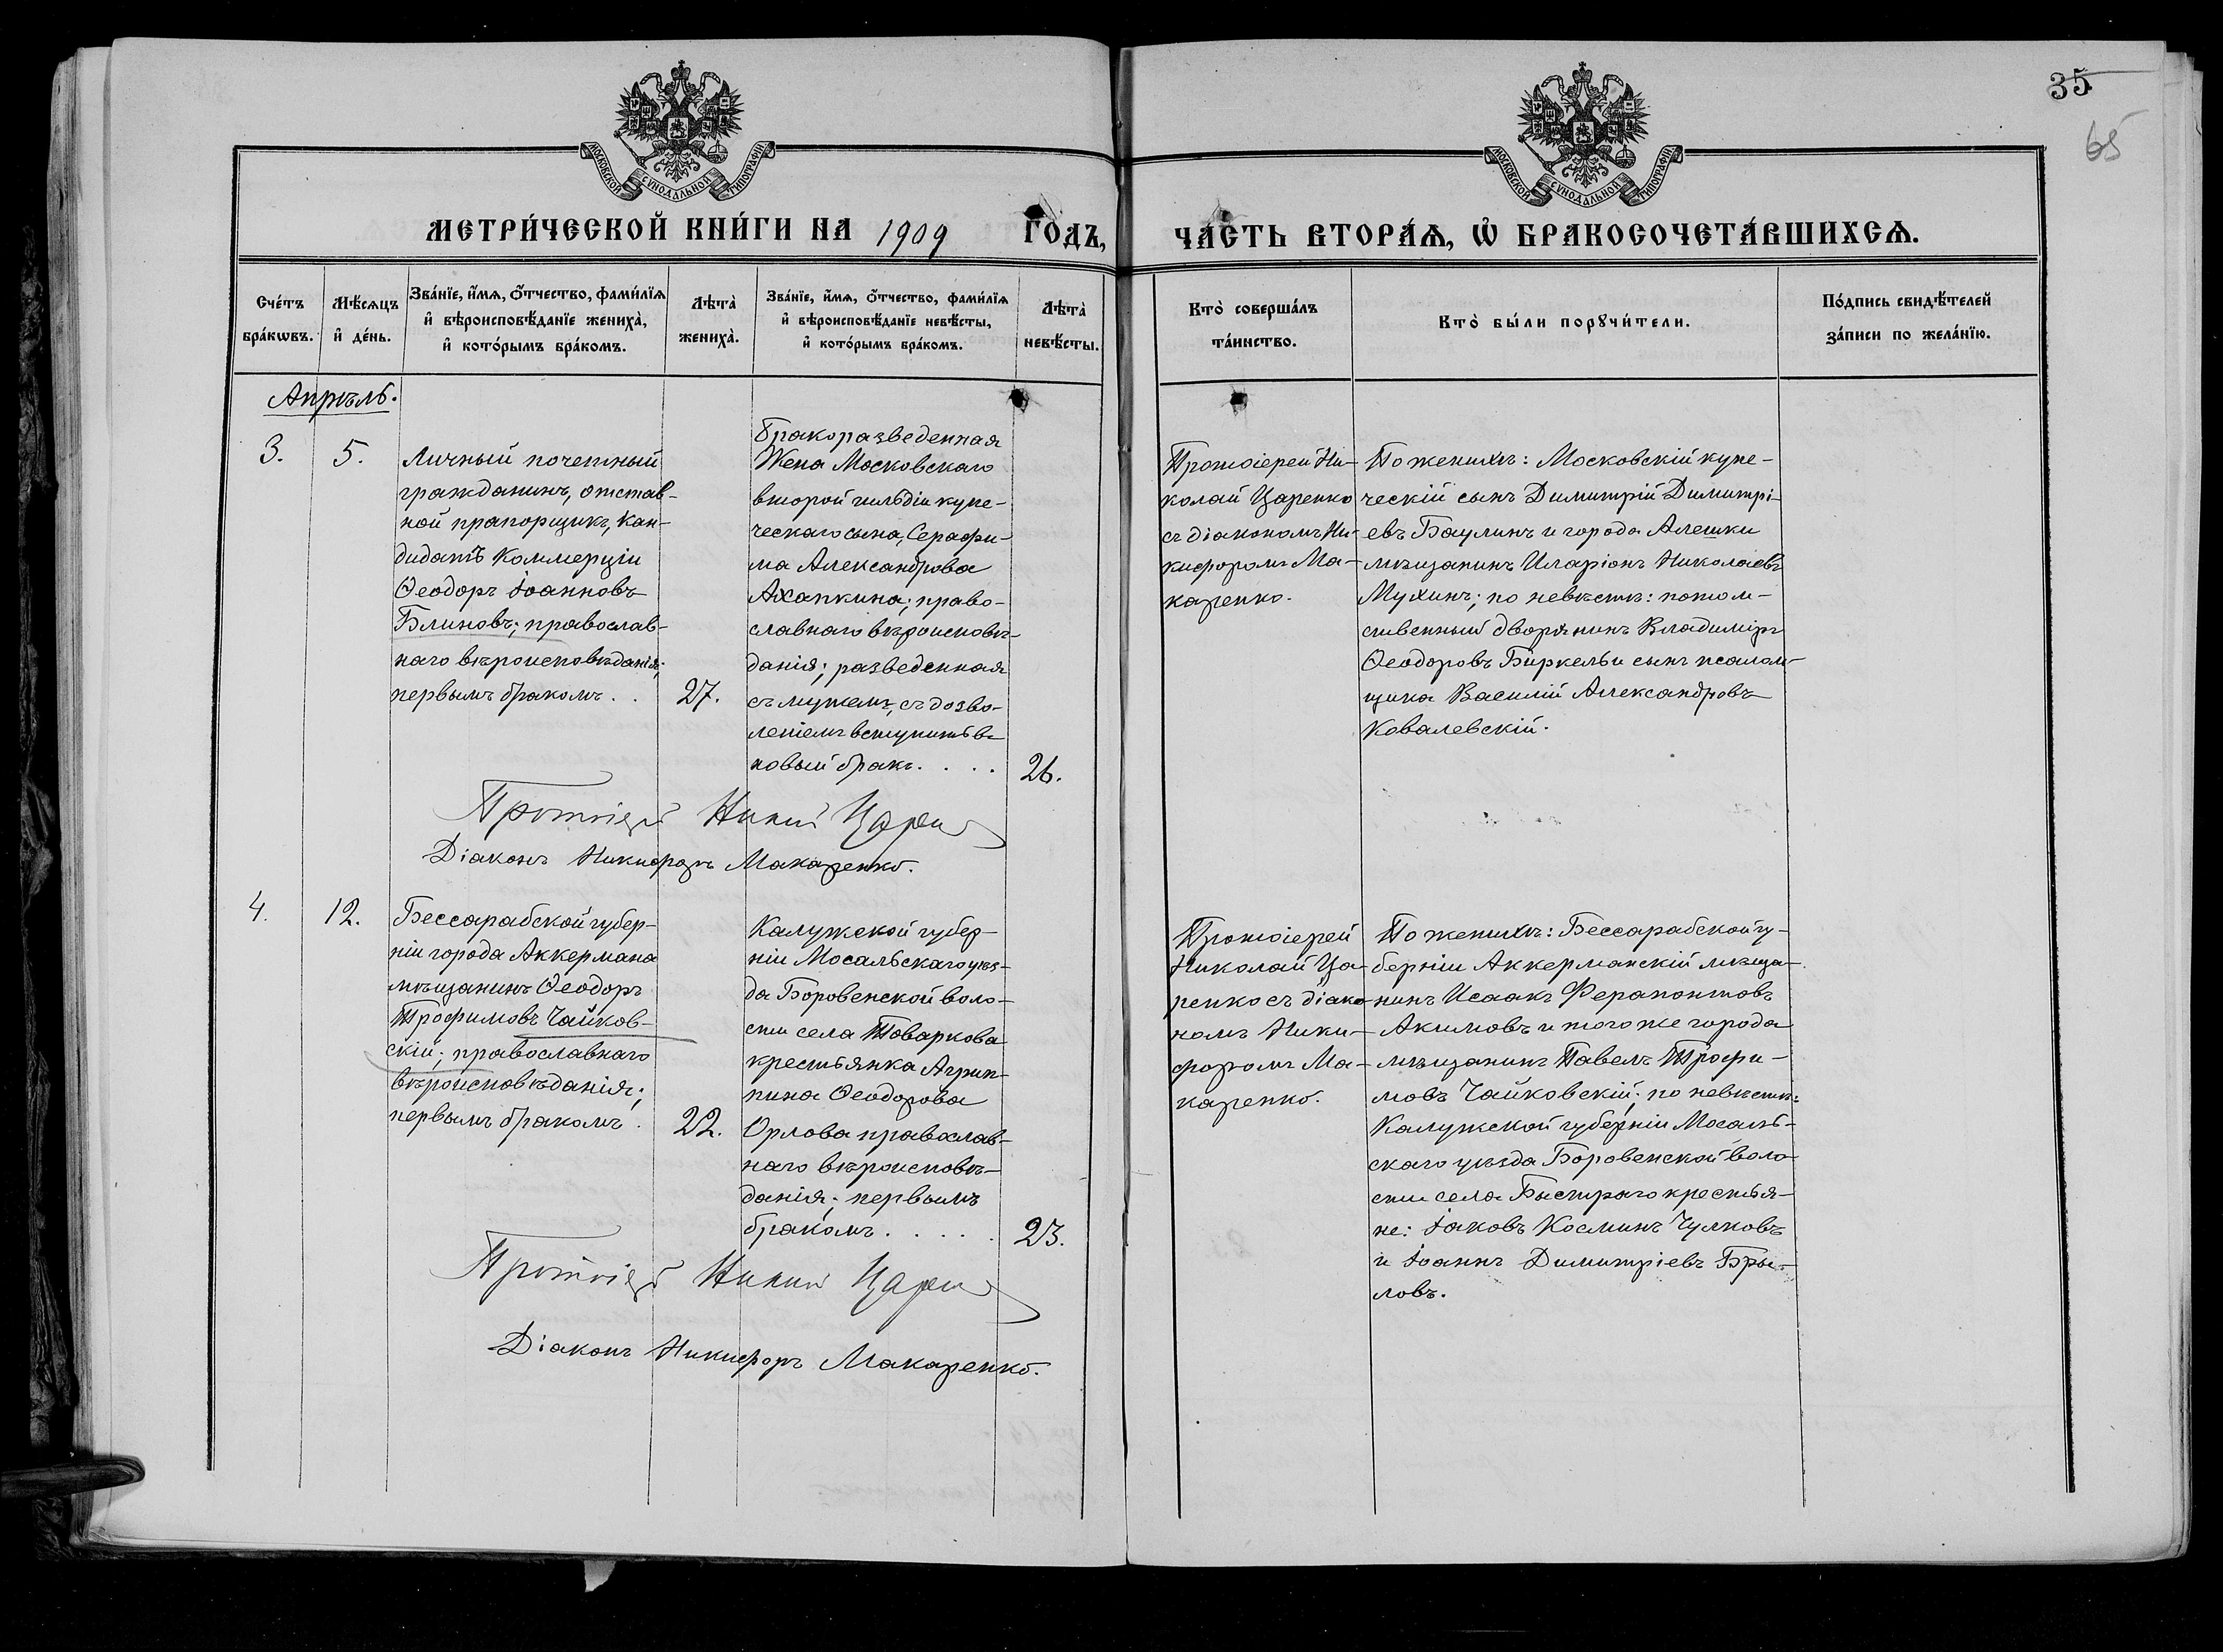 35
65
МОСКОВСКОЙ СѴНОДАЛЬНОЙ ТИПОГРАФІИ
МОСКОВСКОЙ СѴНОДАЛЬНОЙ ТИПОГРАФІИ
МЕТРИ́ЧЕСКОЙ КНИ́ГИ НА 1909 ГО́ДЪ,
ЧА́СТЬ ВТОРА́Ѧ, Ѡ҆ БРАКОСОЧЕТА́ВШИХСѦ.
Сче́тъ
бра́кѡвъ.
Мѣ́сѧцъ
и҆ де́нь.
Зва́нїе, и҆́мѧ, о҆́тчество, фами́лїѧ
и҆ вѣроисповѣ́данїе жениха̀,
и҆ кото́рымъ бра́комъ.
Лѣта̀
жениха̀.
Зва́нїе, и҆́мѧ, о҆́тчество, фами́лїѧ
и҆ вѣроисповѣ́данїе невѣ́сты,
и҆ кото́рымъ бра́комъ.
Лѣта̀
невѣ́сты.
Кто̀ соверша́лъ
та́инство.
Кто̀ бы́ли порꙋчи́тели.
По́дпись свидѣ́телей
за́писи по жела́нїю.
Апрѣль.
3.
5.
Личный почетный
гражданинъ, отстав-
ной прапорщикъ, кан-
дидатъ Коммерціи
Ѳеодоръ Іоанновъ
Блиновъ; православ-
наго вѣроисповѣданія;
первымъ бракомъ. .
27.
бракоразведенная
Жена Московскаго
второй гильдіи купе-
ческаго сына, Серафи-
ма Александрова
Ахапкина; право-
славнаго вѣроисповѣ-
данія; разведенная
съ мужемъ, съ дозво-
леніемъ вступить въ
новый бракъ. . . .
26.
Протоіерей Ни-
колай Царенко
съ діакономъ Ни-
кифоромъ Ма-
каренко.
По женихѣ: Московскій купе-
ческій сынъ Димитрій Димитрі-
евъ Баулинъ и города Алешки
мѣщанинъ Иларіонъ Николаевъ
Мухинъ; по невѣстѣ: потом-
ственный дворянинъ Владиміръ
Ѳеодоровъ Биркель и сынъ псалом-
щика Василій Александровъ
Ковалевскій.
Протоіерей Николай Царенко
Діаконъ Никифоръ Макаренко.
4.
12.
Бессарабской губер-
ніи города Аккермана
мѣщанинъ Ѳеодоръ
Трофимовъ Чайков-
скій; православнаго
вѣроисповѣданія;
первымъ бракомъ.
22.
Калужской губер-
ніи Мосальскаго уѣз-
да Боровенской воло-
сти села Товаркова
крестьянка Агрип-
пина Ѳеодорова
Орлова православ-
наго вѣроисповѣ-
данія; первымъ
бракомъ. . . . .
23.
Протоіерей
Николай Ца-
ренко съ діако-
номъ Ники-
форомъ Ма-
каренко.
По женихѣ: Бессарабской гу-
берніи Аккерманскій мѣща-
нинъ Исаакъ Ферапонтовъ
Акимовъ и того же города
мѣщанинъ Павелъ Трофи-
мовъ Чайковскій; по невѣстѣ:
Калужской губерніи Мосаль-
скаго уѣзда Боровенской воло-
сти села Быстраго крестья-
не: Іаковъ Косминъ Чулковъ
и Іоаннъ Димитріевъ Бры-
ловъ.
Протоіерей Николай Царенко
Діаконъ Никифоръ Макаренко.